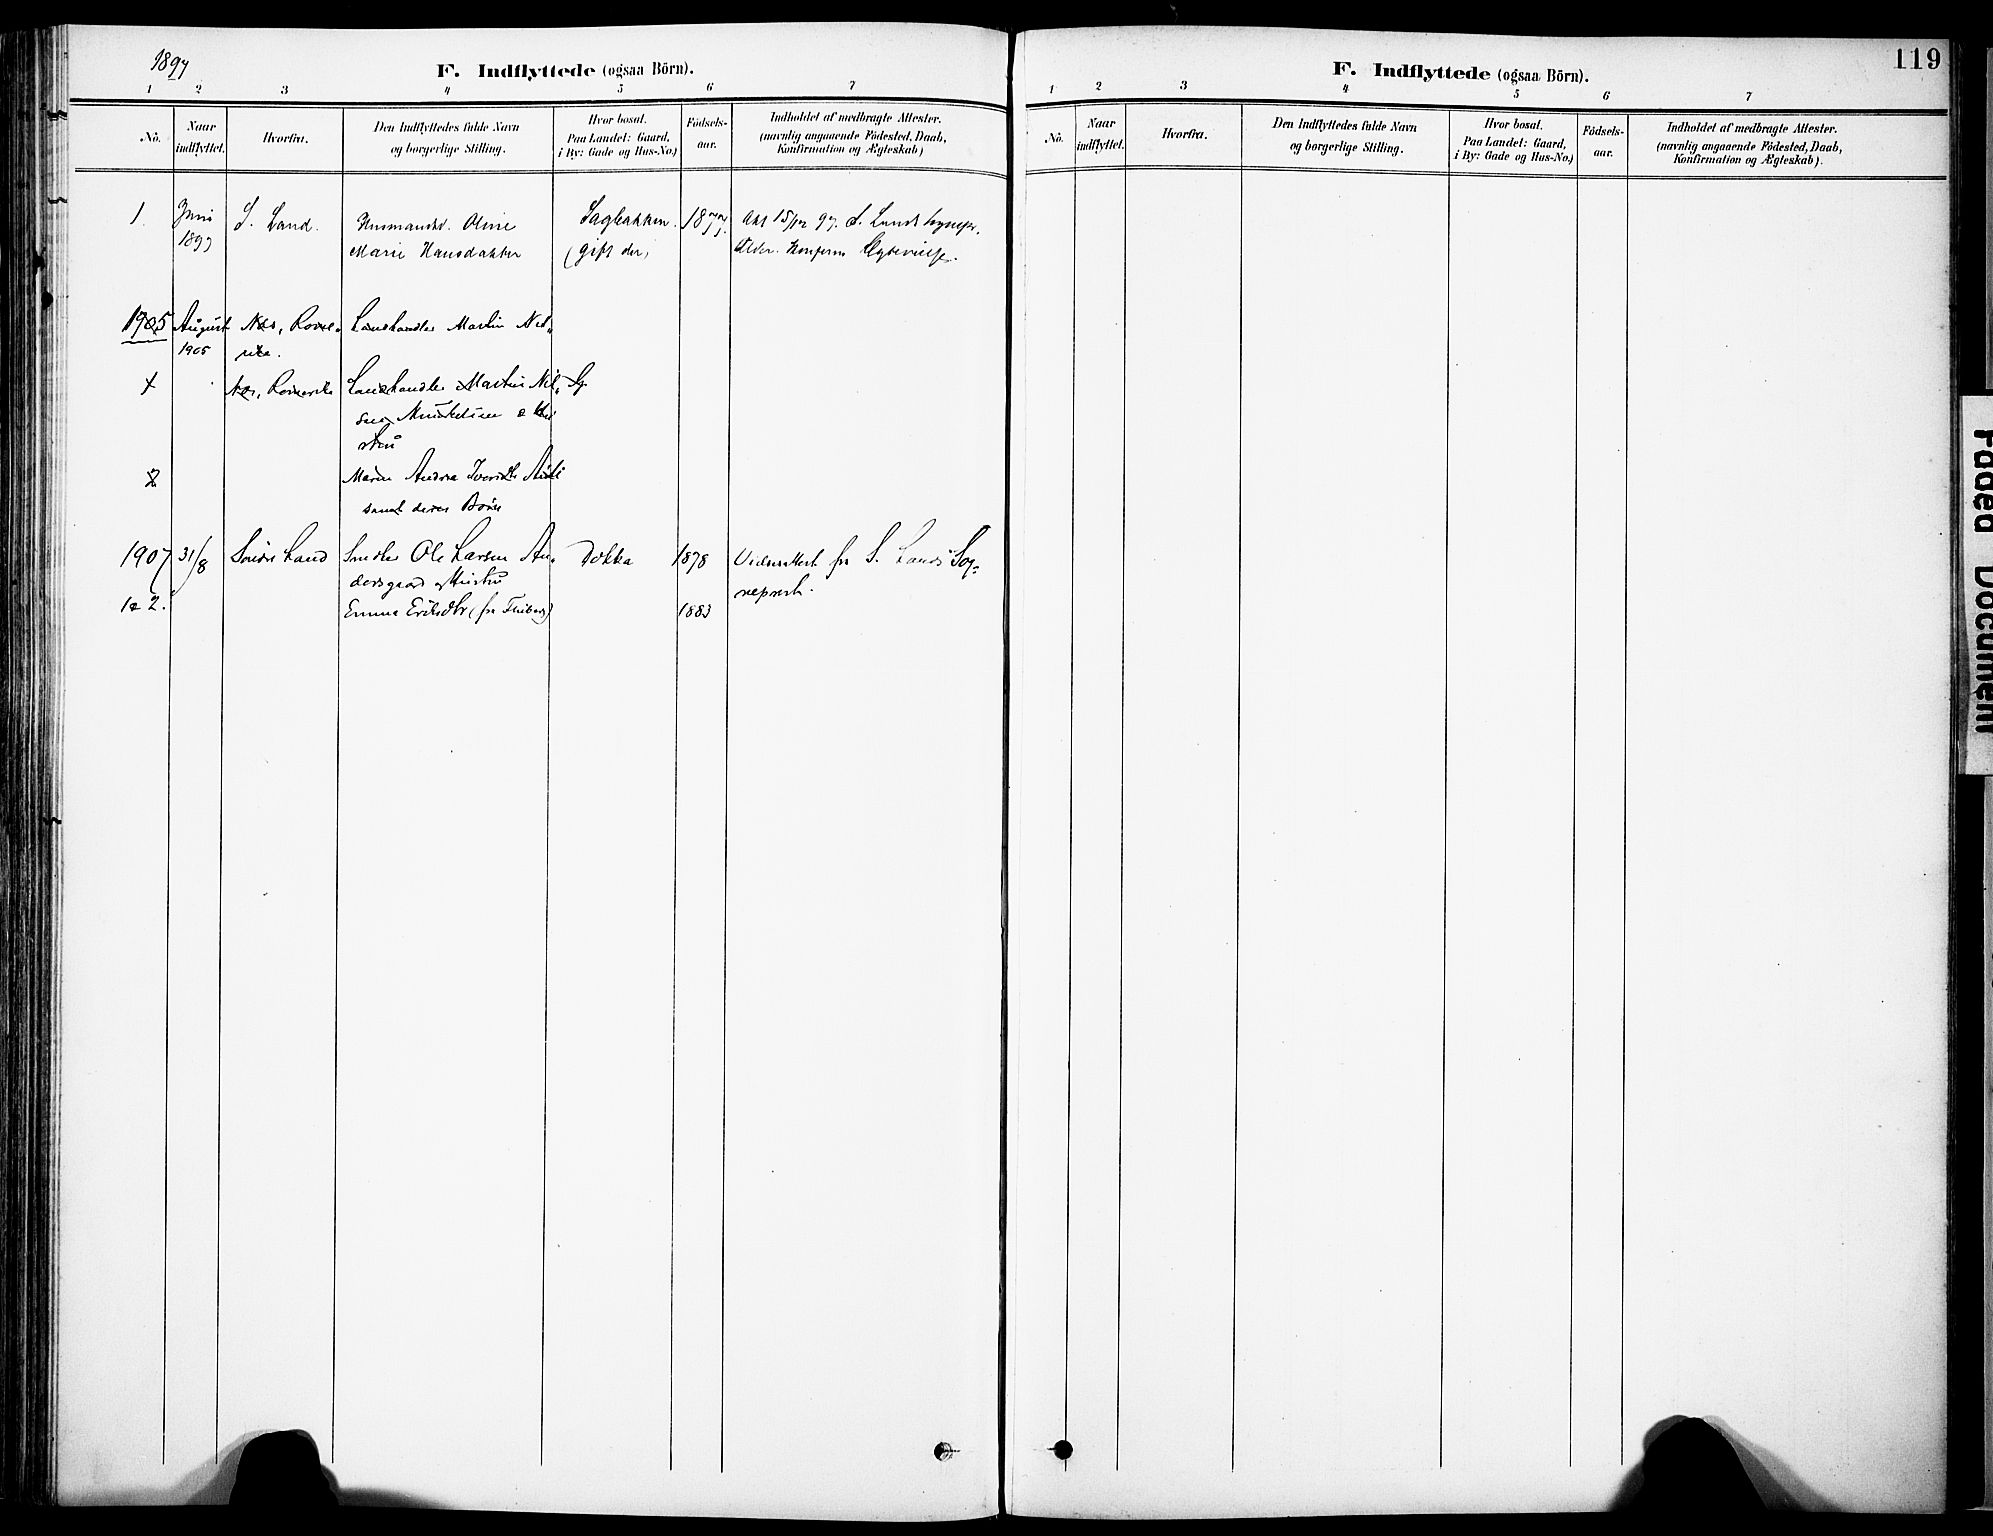 1897
F. Indflyttede (ogsaa Börn).
1 2 3 4 5 6 7
No.
Naar indflyttet.
Hvorfra.
Den Indflyttedes fulde Navn
og borgerlige Stilling.
Hvor bosat.
Paa Landet: Gaard,
i By: Gade og Hus-No.)
Fødsels-
aar.
Indholdet af medbragte Attester.
(navnlig angaaende Födested, Daab,
Konfirmation og Ægteskab)
1. Juni S. Land. Oline Sagbakken. 18 Att 15/12 97. S. Lands
1897 Marie Hansdatter (gift der)
1905 August Næs, Rome- Landhandler Martin Nil-
1905 rike.
1 Næs, Romerike Landhandler Martin Nil-
sen
stru
2 Maren Andrea
samt deres Börn
1907 31/8 Söndre Land Ole Larsen An- Dokka 1878 fra S. Lands Sog-
dersgaard og Hustru neprest.
1 2. Emma Eriksdtr (fra 1883
119
F. Indflyttede (ogsaa Börn).
1 2 3 4 5 6 7
No.
Naar
indflyttet.
Hvorfra.
Den Indflyttedes fulde Navn
og borgerlige Stilling.
Hvor bosat.
Paa Landet: Gaard,
i By: Gade og Hus-No.)
Födsels-
aar.
Indholdet af medbragte Attester.
(navnlig angaaende Födested, Daab,
Konfirmation og Ægteskab).
Faded Document